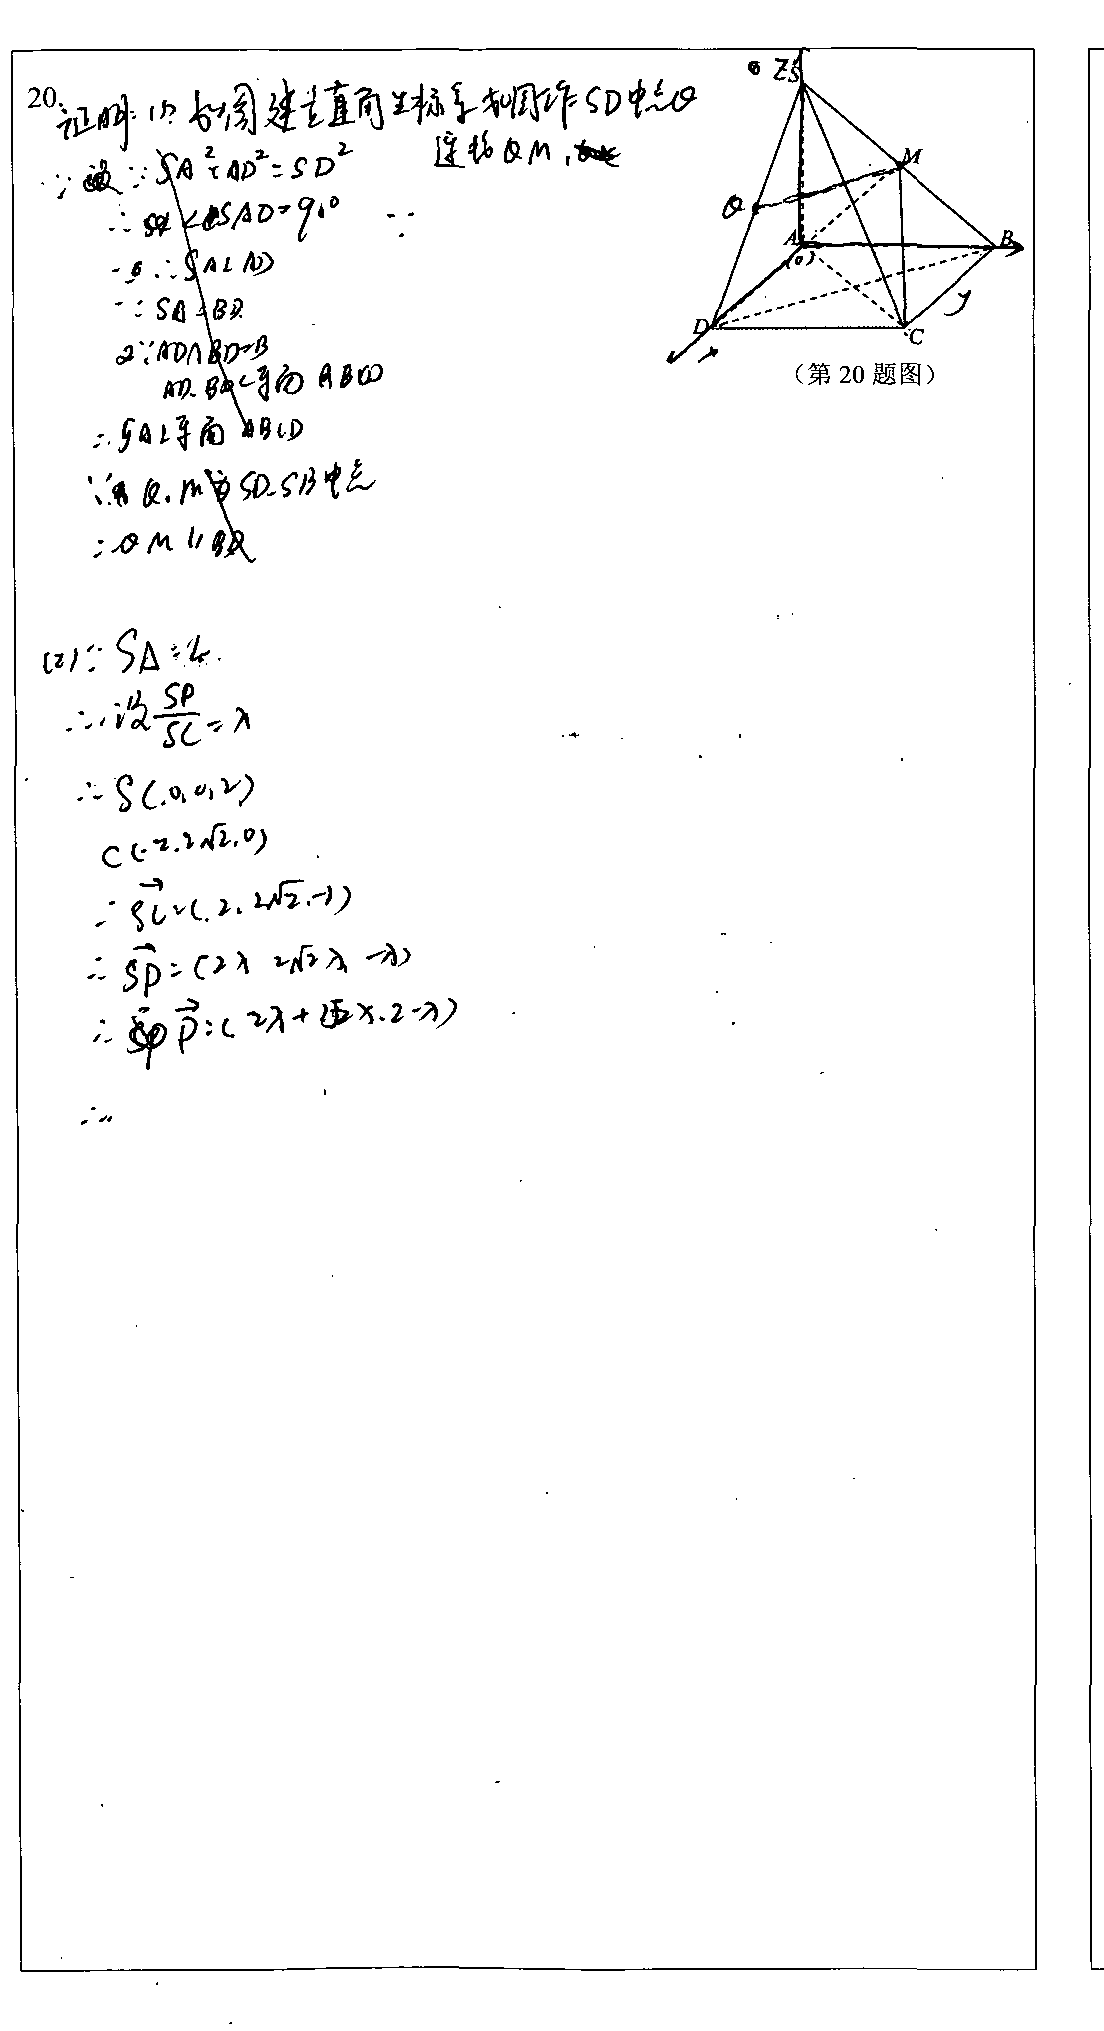 20.
证明:(1)如图建立直角坐标系 利用作SD中点Q
连接QM,
∵ ∵SA²+AD²=SD²
∴ ∠SAD=90°
∴SA⊥AD
∵SA=BD
又∵AD∩BD=B
AD.BD⊂平面ABCD
∴SA⊥平面ABCD
∵ Q.M为SD.SB中点
∴QM∥BD
(2)∵SA=2.
∴设SP/SC=λ
∴S(0,0,2)
C(-2.2√2.0)
∴SC=(2.2√2.-1)
∴SP=(2λ 2√2λ -λ)
∴ P=(2λ+ 2λ.2-λ)
∴
ZS
M
Q
A
(0)
B
D
x
y
C
(第 20 题图)